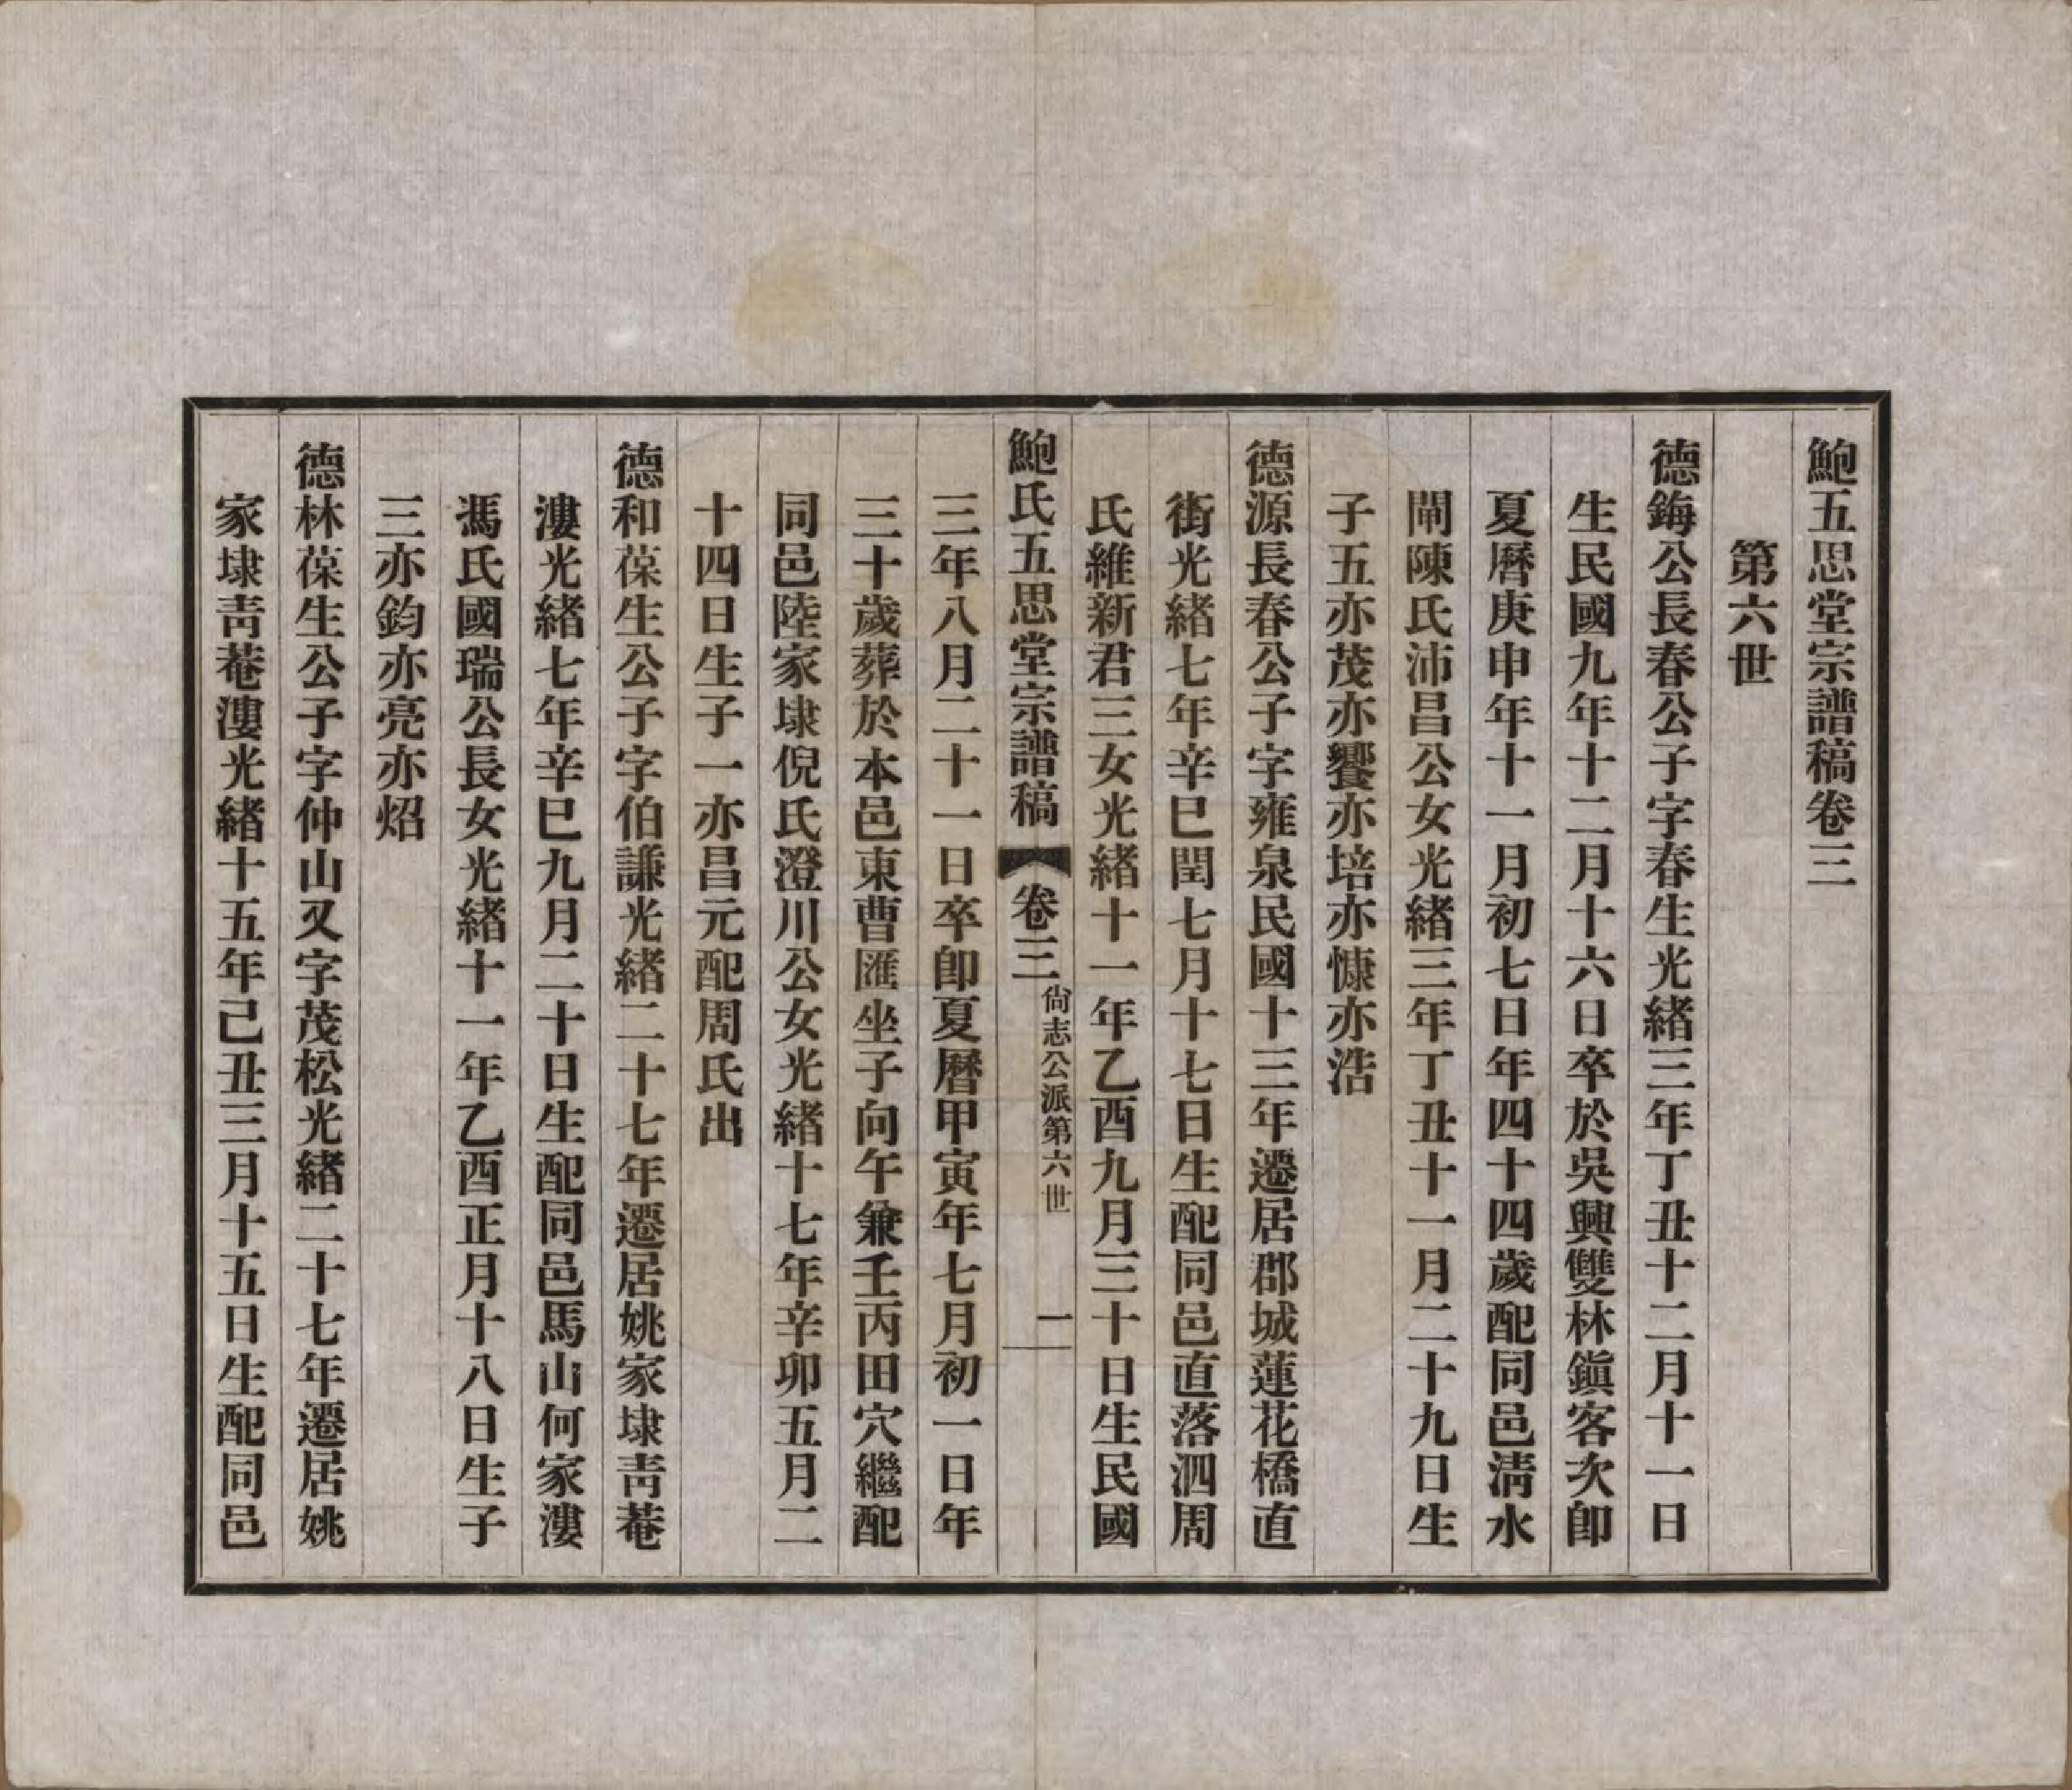 鮑五思堂宗譜稿卷三
第六世
德鋂公長春公子字春生光緒三年丁丑十二月十一日
生民國九年十二月十六日卒於吳興雙林鎭客次卽
夏曆庚申年十一月初七日年四十四歲配同邑淸水
閘陳氏沛昌公女光緒三年丁丑十一月二十九日生
子五亦茂亦饗亦培亦慷亦浩
德源長春公子字雍泉民國十三年遷居郡城蓮花橋直
街光緒七年辛巳閏七月十七日生配同邑直落泗周
氏維新君三女光緒十一年乙酉九月三十日生民國
鮑氏五思堂宗譜稿 卷三 尙志公派第六世 一
三年八月二十一日卒卽夏曆甲寅年七月初一日年
三十歲葬於本邑東曹匯坐子向午兼壬丙田穴繼配
同邑陸家埭倪氏澄川公女光緒十七年辛卯五月二
十四日生子一亦昌元配周氏出
德和葆生公子字伯謙光緒二十七年遷居姚家埭靑菴
漊光緒七年辛巳九月二十日生配同邑馬山何家漊
馮氏國瑞公長女光緒十一年乙酉正月十八日生子
三亦鈞亦亮亦炤
德林葆生公子字仲山又字茂松光緒二十七年遷居姚
家埭靑菴漊光緒十五年己丑三月十五日生配同邑